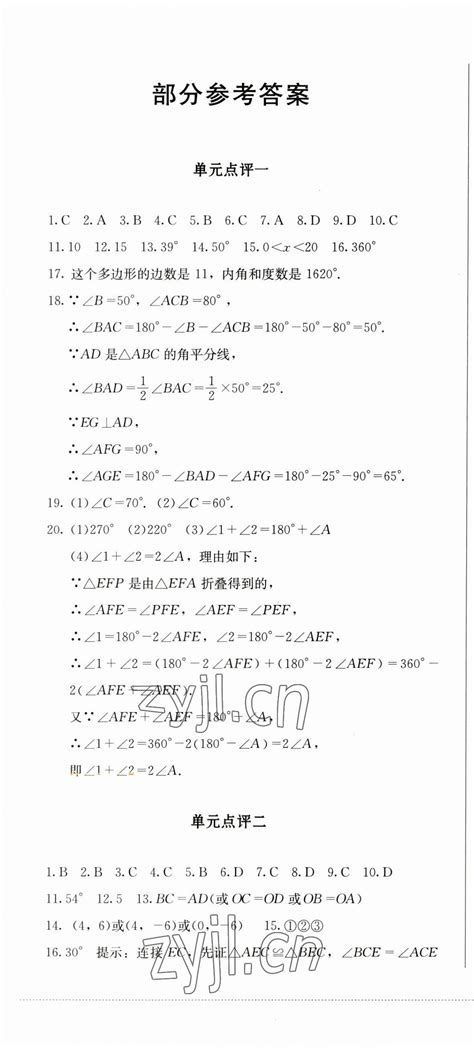 部分参考答案
单元点评一
1.C 2.A 3.B 4.B 5.B 6.C 7.A 8.D 9.D 10.C
11.10 12.15 13.39° 14.50° 15.0<x<20 16.360°
17. 这个多边形的边数是 11，内角和度数是 1620°.
18. ∵∠B=50°，∠ACB=80°，
∴∠BAC=180°-∠B-∠ACB=180°-50°-80°=50°.
∵AD 是△ABC 的角平分线，
∴∠BAD=1/2∠BAC=1/2×50°=25°.
∵EG⊥AD，
∴∠AFG=90°.
∴∠AGE=180°-∠BAD-∠AFG=180°-25°-90°=65°.
19. (1)∠C=70°. (2)∠C=60°.
20. (1)270° (2)220° (3)∠1+∠2=180°+∠A
(4)∠1+∠2=2∠A，理由如下：
∵△EFP 是由△EFA 折叠得到的，
∴∠AFE=∠PFE，∠AEF=∠PEF.
∴∠1=180°-2∠AFE，∠2=180°-2∠AEF，
∴∠1+∠2=(180°-2∠AFE)+(180°-2∠AEF)=360°-
2(∠AFE+∠AEF).
又∵∠AFE+∠AEF=180°-∠A，
∴∠1+∠2=360°-2(180°-∠A)，
即∠1+∠2=2∠A.
zyjl.cn
单元点评二
1.B 2.B 3.C 4.C 5.D 6.B 7.C 8.D 9.C 10.D
11.54° 12.5 13.BC=AD(或OC=OD 或OB=OA)
14. (4，6)或(4，-6)或(0，-6) 15.①②③
16.30° 提示：连接 EC，先证△AEC≌△BEC，∠BCE=∠ACE
zyjl.cn